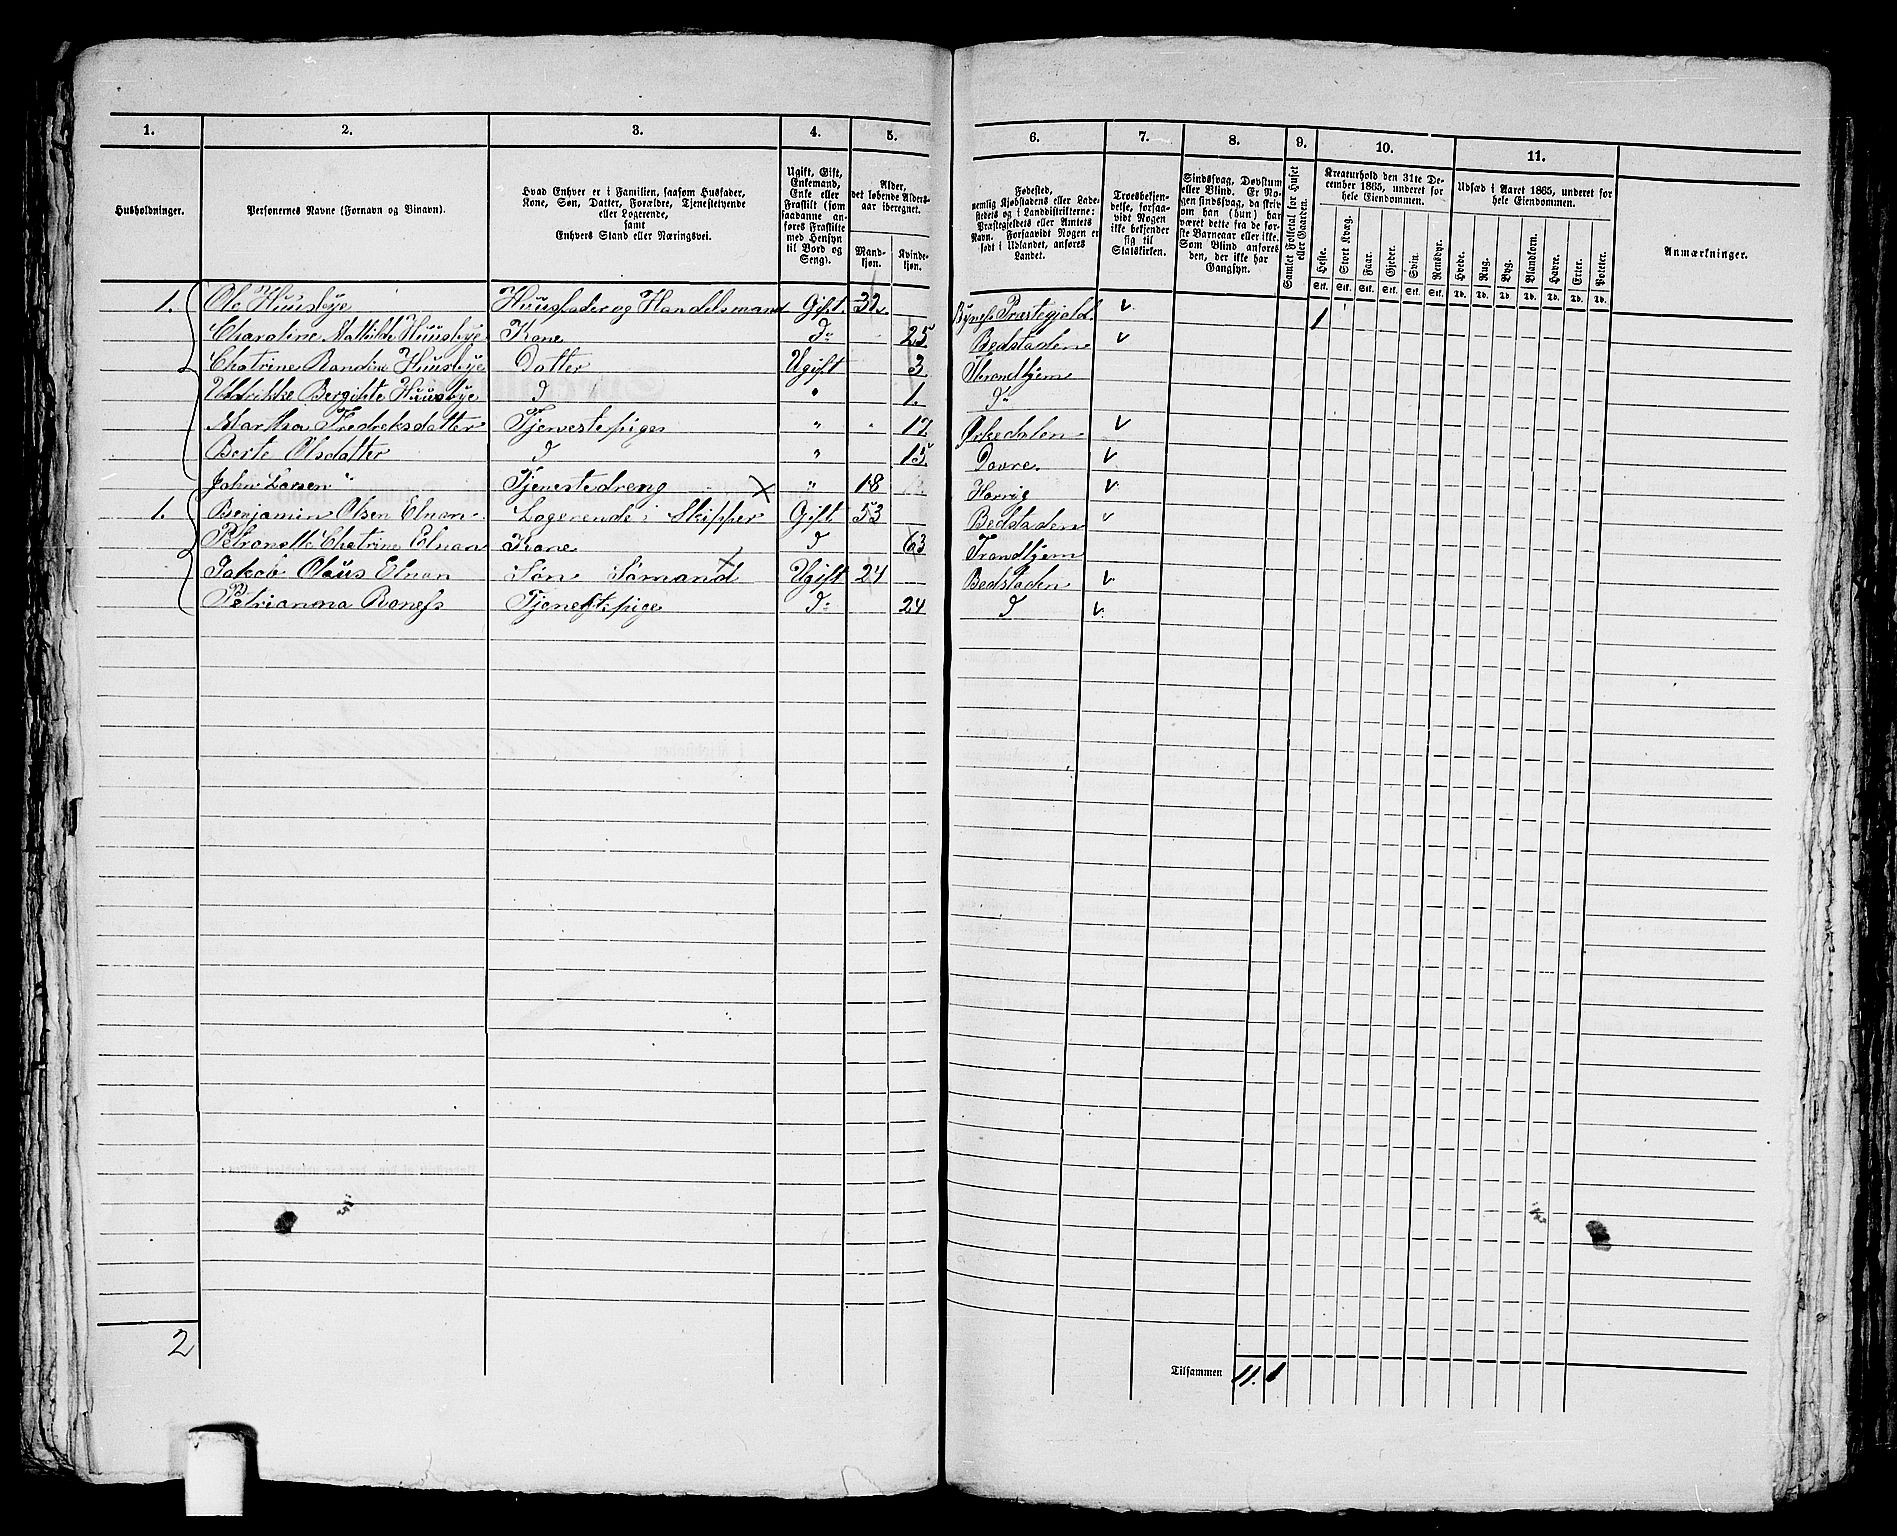 1. 2. 3. 4. 5. 6. 7. 8. 9. 10. 11.
Husholdninger.
Personernes Navne (Fornavn og Vinavn).
Hvad Enhver er i Familien, saasom Husfader,
Kone, Søn, Datter, Forældre, Tjenestetyende
eller Logerende,
samt
Enhvers Stand eller Næringsvei.
Ugift, Gift,
Enkemand,
Enke eller
Fraskilt (som
saadanne an-
føres Fraskilte
med Hensyn
til Bord og
Seng).
Alder,
det løbende Alders-
aar iberegnet.
Mand-
kjøn.
Kvinde-
kjøn.
Fødested,
nemlig Kjøbstadens eller Lade-
stedets og i Landdistrikterne:
Præstegjeldets eller Amtets
Navn. Forsaavidt Nogen er
født i Udlandet, anføres
Landet.
Troesbekjen-
delse, forsaa-
vidt Nogen
ikke bekjender
sig til
Statskirken.
Sindssvag, Døvstum
eller Blind. Er No-
gen sindssvag, da skriv
om han (hun) har
været dette fra de før-
ste Barneaar eller ikke.
Som Blind anføres
den, der ikke har
Gangsyn.
Samlet Folketal for Huset
eller Gaarden.
Kreaturhold den 31te De-
cember 1865, underet for
hele Eiendommen.
Heste. Stort Kvæg. Faar. Gjeder. Svin. Rensdyr.
Stk. Stk. Stk. Stk. Stk. Stk.
Udsæd i Aaret 1865, underet for
hele Eiendommen.
Hvede. Rug. Byg. Blandkorn. Havre. Erter. Poteter.
Td. Td. Td. Td. Td. Td. Td.
Anmærkninger.
1. Ole Huusbye Huusfader og Handelsmand Gift 32. Bynes Præstegjeld 1
Charoline Mathilde Huusbye Kone do 25 Bedstaden
Chatrine Randine Huusbye Datter Ugift 3 Throndhjem
Uldrikke Bergitte Huusbye d " 1. do
Martha Fredreksdatter Tjenestepige " 17 Orkedalen
Berte Olsdatter d " 15 Dovre.
John Larsen Tjenestedreng " 18
1. Benjamin Olsen Elnan Logerende, Skipper Gift 53 Bedstaden
Chatrine Elnan Kone d 63 Trondhjem
Jakob Olaus Elnan Søn Sømand Ugift 24 Bedstaden
Petrianna Tjenestepige do 24 d
2
Tilsammen 11. 1